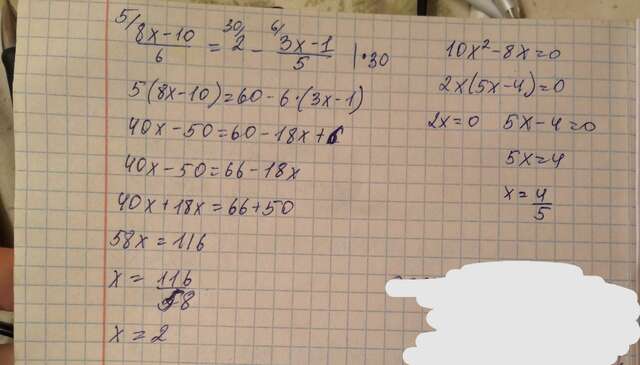 5/ 8x-10/6 = 30/ 2 - 6/ 3x-1/5 |·30
5(8x-10)=60-6·(3x-1)
40x-50=60-18x+6
40x-50=66-18x
40x+18x=66+50
58x=116
x= 116/58
x=2
10x²-8x=0
2x(5x-4)=0
2x=0 5x-4=0
5x=4
x= 4/5